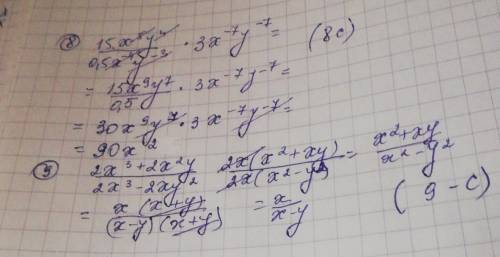 ⑧ 15x⁴y⁴/0,5x⁻⁵y⁻³ · 3x⁻⁷y⁻⁷ = (8C)
= 15x⁹y⁷/0,5 · 3x⁻⁷y⁻⁷ =
= 30x⁹y⁷ · 3x⁻⁷y⁻⁷ =
= 90x²
⑨ 2x³+2x²y/2x³-2xy² 2x(x²+xy)/2x(x²-y²) = x²+xy/x²-y²
= x(x+y)/(x-y)(x+y) = x/x-y (9-C)